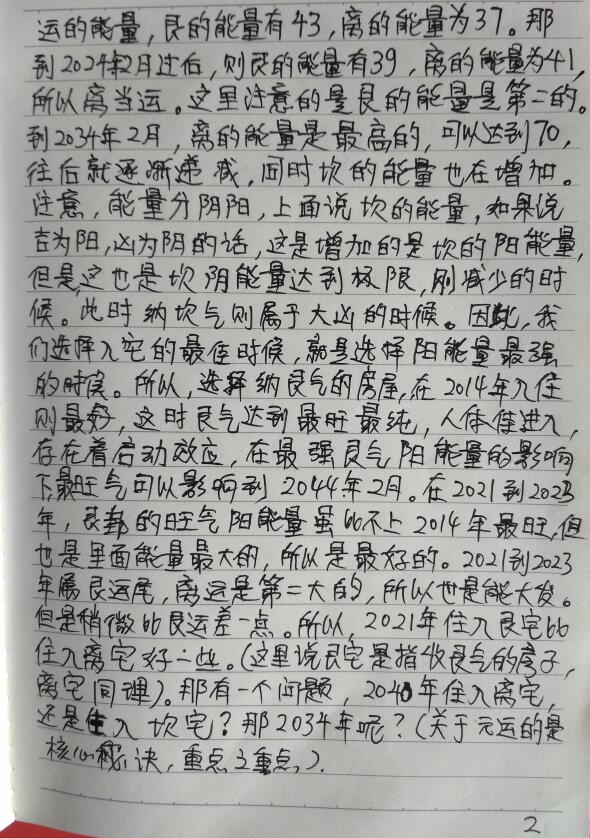 运的能量，艮的能量有43，离的能量为37。那
到2024年2月过后，则艮的能量有39，离的能量为41，
所以离当运。这里注意的是艮的能量是第二的。
到2034年2月，离的能量是最高的，可以达到70，
往后就逐渐递减，同时坎的能量也在增加。
注意，能量分阴阳，上面说坎的能量，如果说
吉为阳，凶为阴的话，这是增加的是坎的阳能量，
但是，这也是坎阴能量达到极限，刚减少的时
候。此时纳坎气则属于大凶的时候。因此，我
们选择入宅的最佳时候，就是选择阳能量最强
的时候。所以，选择纳艮气的房屋，在2014年入住
则最好，这时艮气达到最旺最纯，人体住进入，
存在着启动效应，在最强艮气阳能量的影响
下，最旺气可以影响到2044年2月。在2021到2023
年，艮卦的旺气阳能量虽比不上2014年最旺，但
也是里面能量最大的，所以是最好的。2021到2023
年属艮运尾，离运是第二大的，所以也是能大发。
但是稍微比艮运差一点。所以，2021年住入艮宅比
住入离宅好一些。（这里说艮宅是指收艮气的房子，
离宅同理）。那有一个问题，2040年住入离宅，
还是住入坎宅？那2034年呢？（关于元运的是
核心秘诀，重点之重点，）.
2